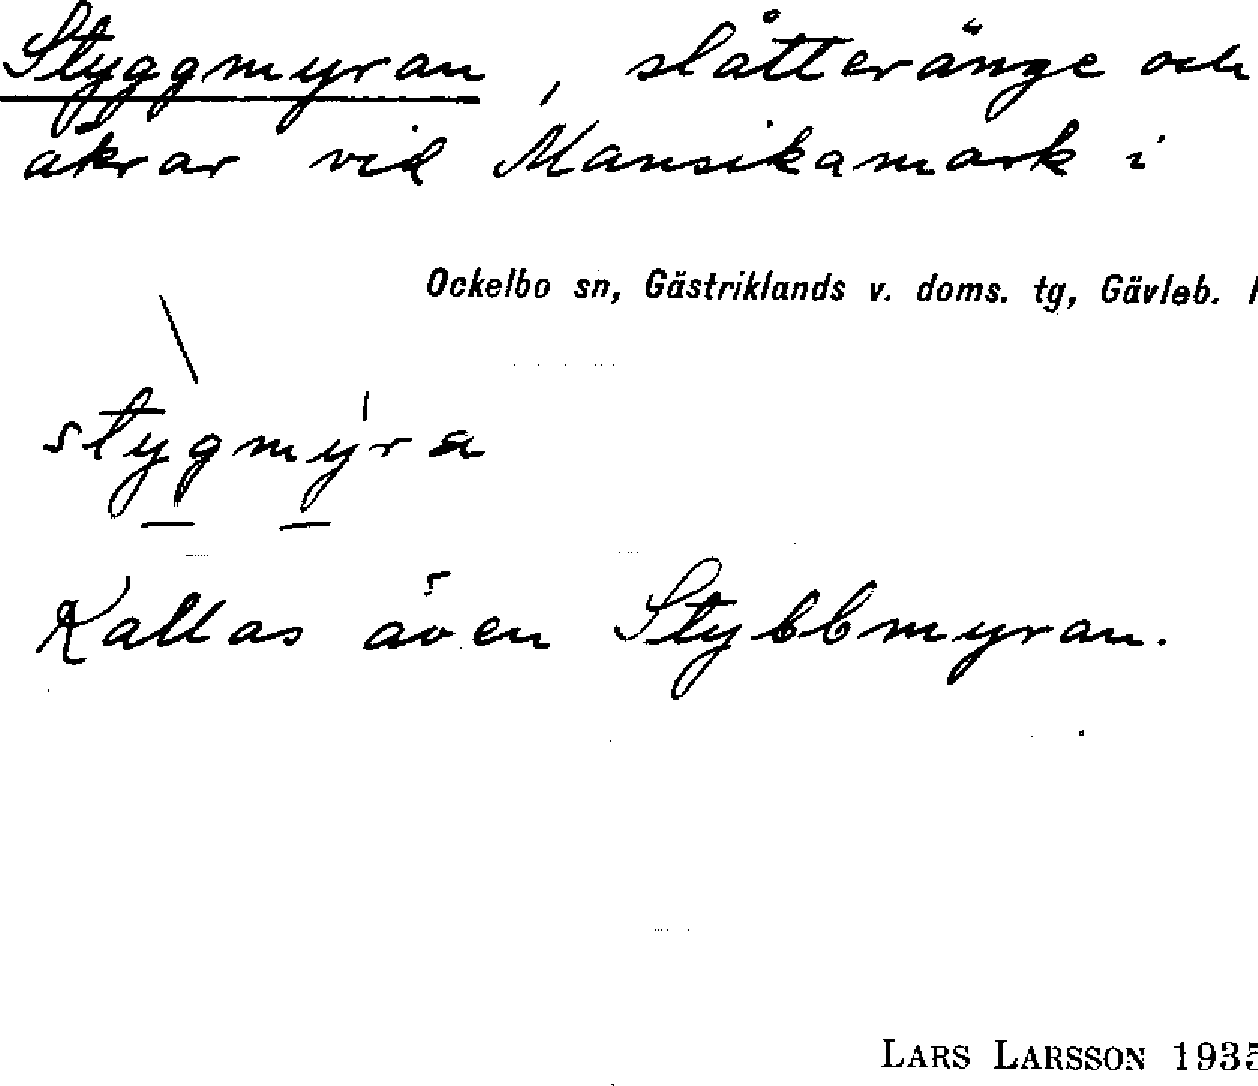 Styggmyran, slåtteränge och
åkrar vid Mansikamark i
Ockelbo sn, Gästriklands v. doms. tg, Gävleb.
stygmy̍ra
Kallas även Stybbmyran.
LARS LARSSON 1935